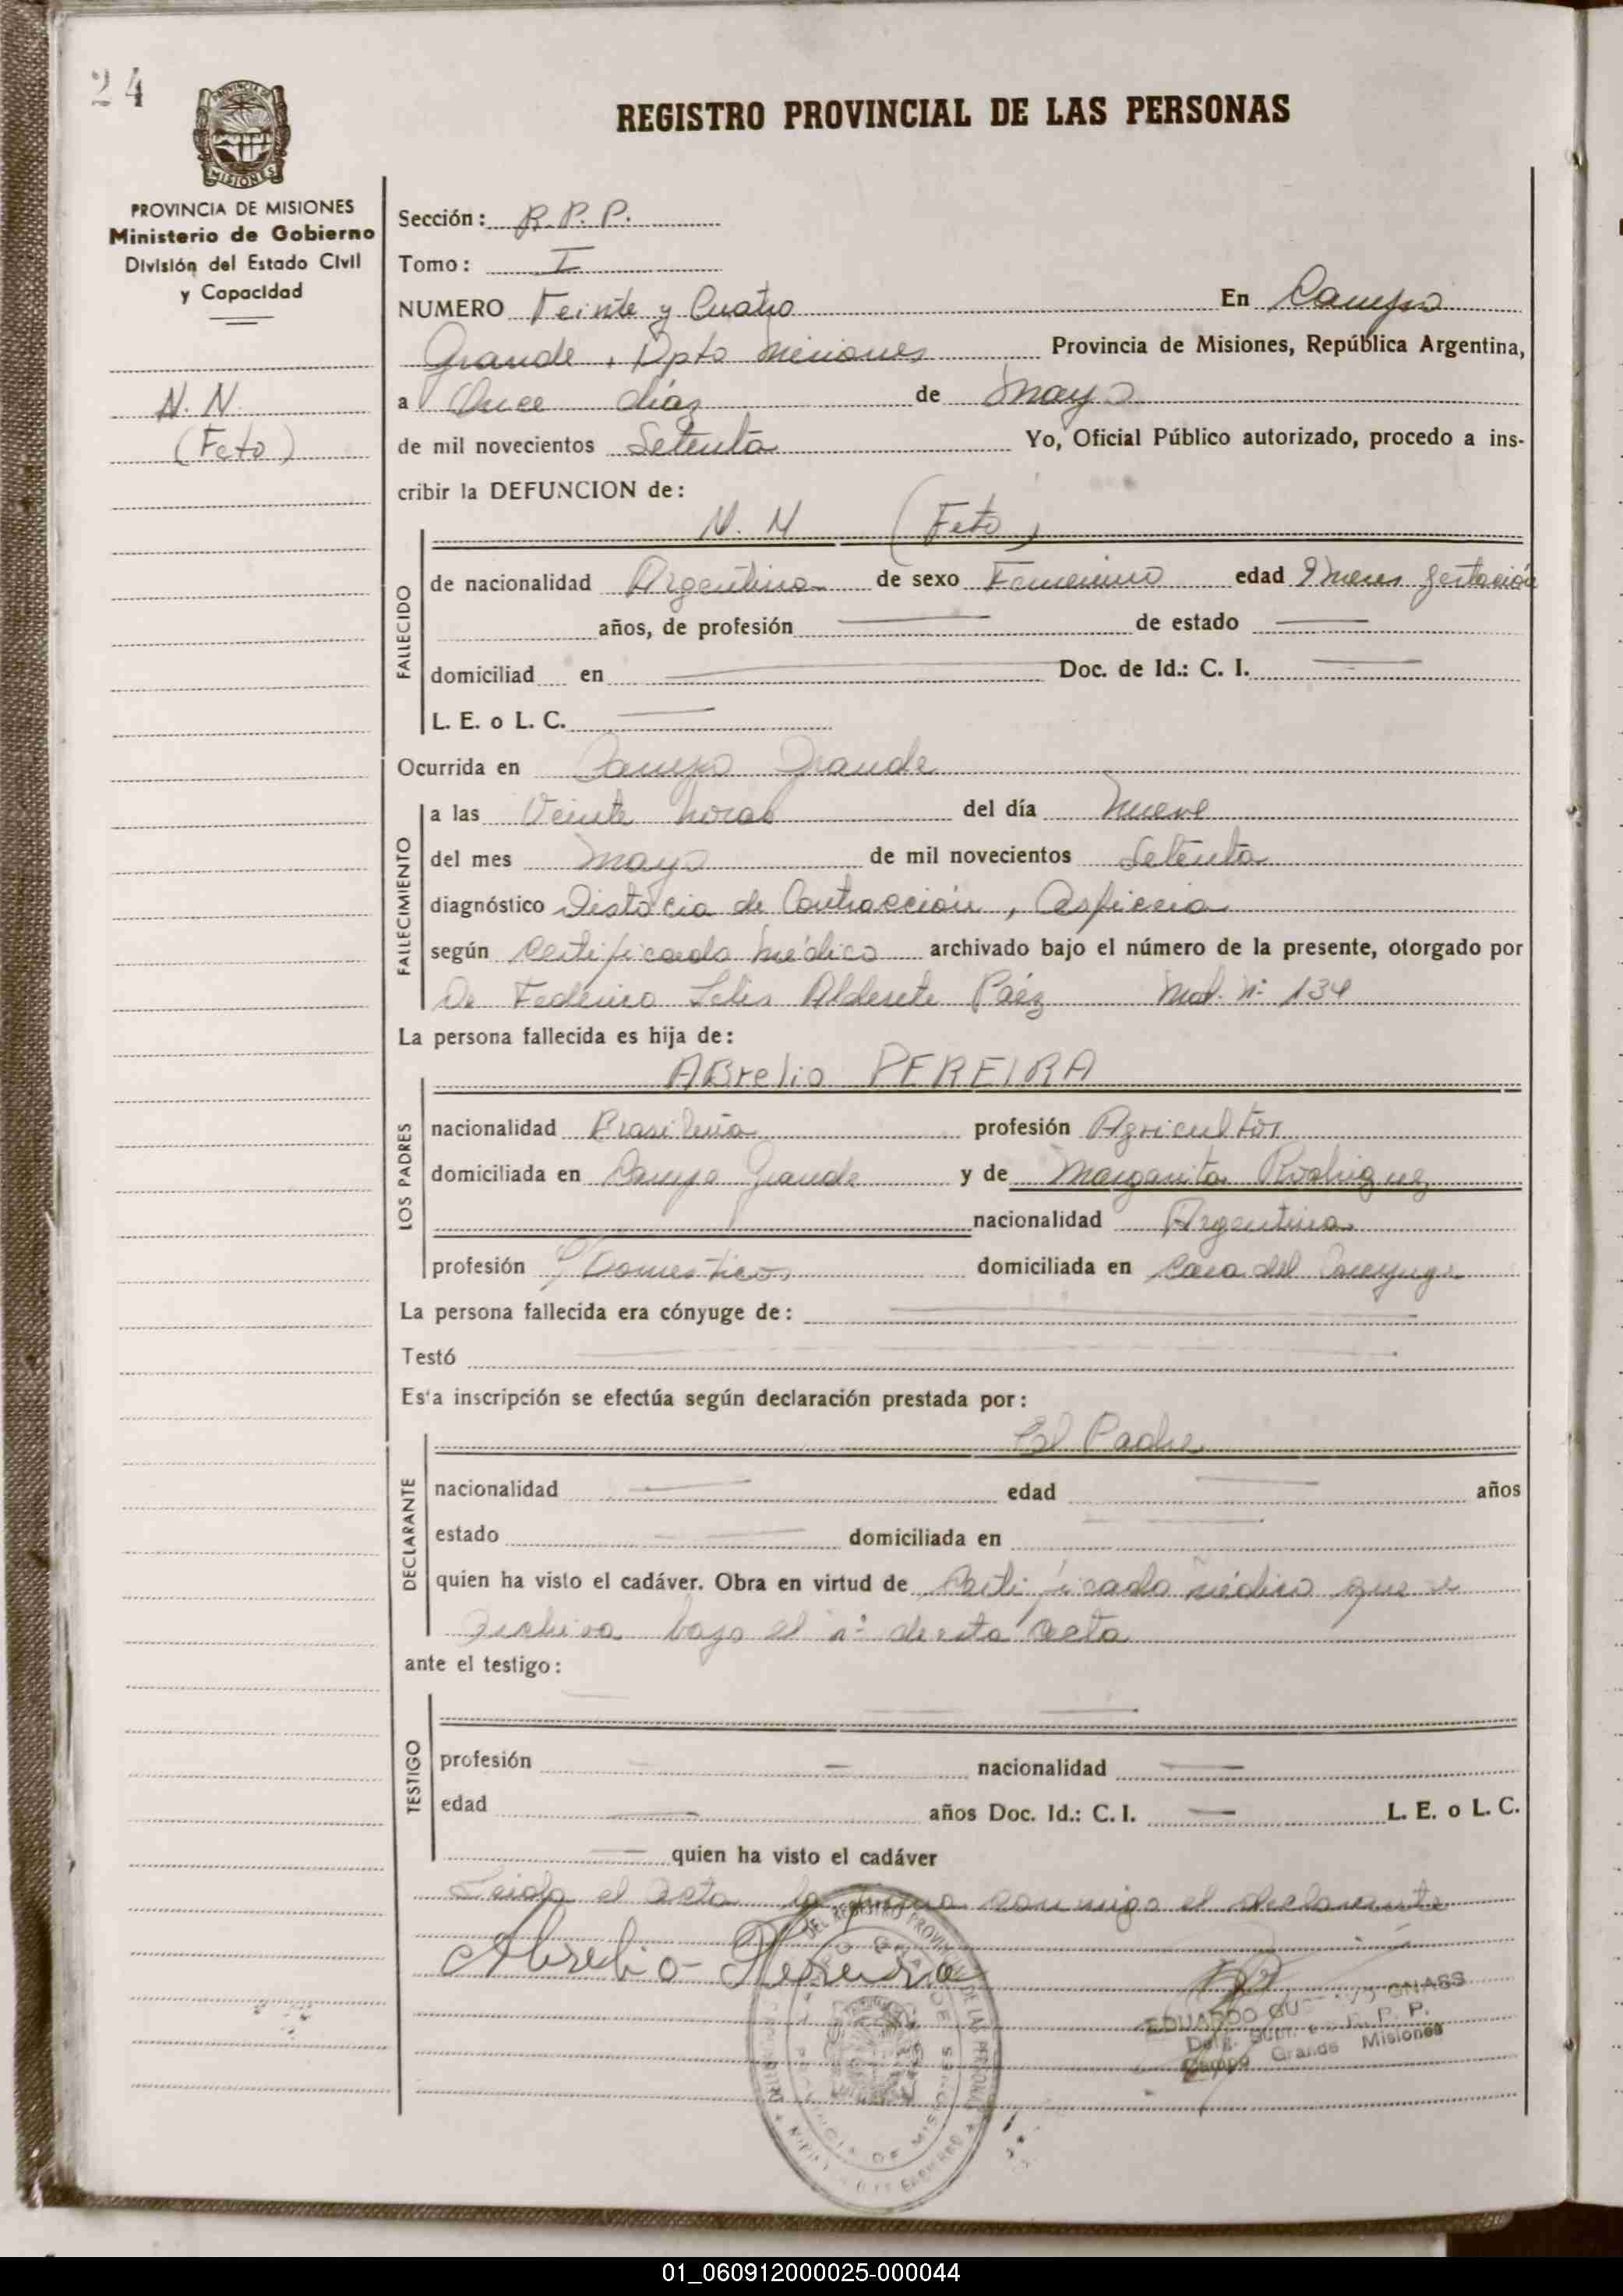 24
PROVINCIA DE MISIONES
Ministerio de Gobierno
División del Estado Civil
y Capacidad
N. N.
(Feto)
REGISTRO PROVINCIAL DE LAS PERSONAS
Sección: R.P.P.
Tomo: I
NUMERO Veinte y Cuatro En Campo
Grande, Dpto Misiones Provincia de Misiones, República Argentina,
a Once días de Mayo
de mil novecientos Setenta Yo, Oficial Público autorizado, procedo a ins-
cribir la DEFUNCION de:
N. N (Feto)
FALLECIDO
de nacionalidad Argentina de sexo Femenino edad 9 meses gestación
años, de profesión de estado
domiciliad en Doc. de Id.: C. I.
L. E. o L. C.
Ocurrida en Campo Grande
FALLECIMIENTO
a las Veinte horas del día nueve
del mes Mayo de mil novecientos Setenta
diagnóstico Distocia de Contracción, Asficcia
según Certificado médico archivado bajo el número de la presente, otorgado por
Dr Federico Alderete Páez Mat. Nº 134
La persona fallecida es hija de:
ABrelio PEREIRA
LOS PADRES
nacionalidad Brasileña profesión Agricultor
domiciliada en Campo Grande y de Margarita Rodriguez
nacionalidad Argentina
profesión Domesticos domiciliada en Casa del Conyuge
La persona fallecida era cónyuge de:
Testó
Esta inscripción se efectúa según declaración prestada por:
El Padre
DECLARANTE
nacionalidad edad años
estado domiciliada en
quien ha visto el cadáver. Obra en virtud de Certificado médico que se
archiva bajo el nº de esta acta
ante el testigo:
TESTIGO
profesión nacionalidad
edad años Doc. Id.: C. I. L. E. o L. C.
quien ha visto el cadáver
Leida el acta la firma conmigo el declarante
Abrelio Pereira
EDUARDO GNASS
R. P. P.
Campo Grande Misiones
01_060912000025-000044